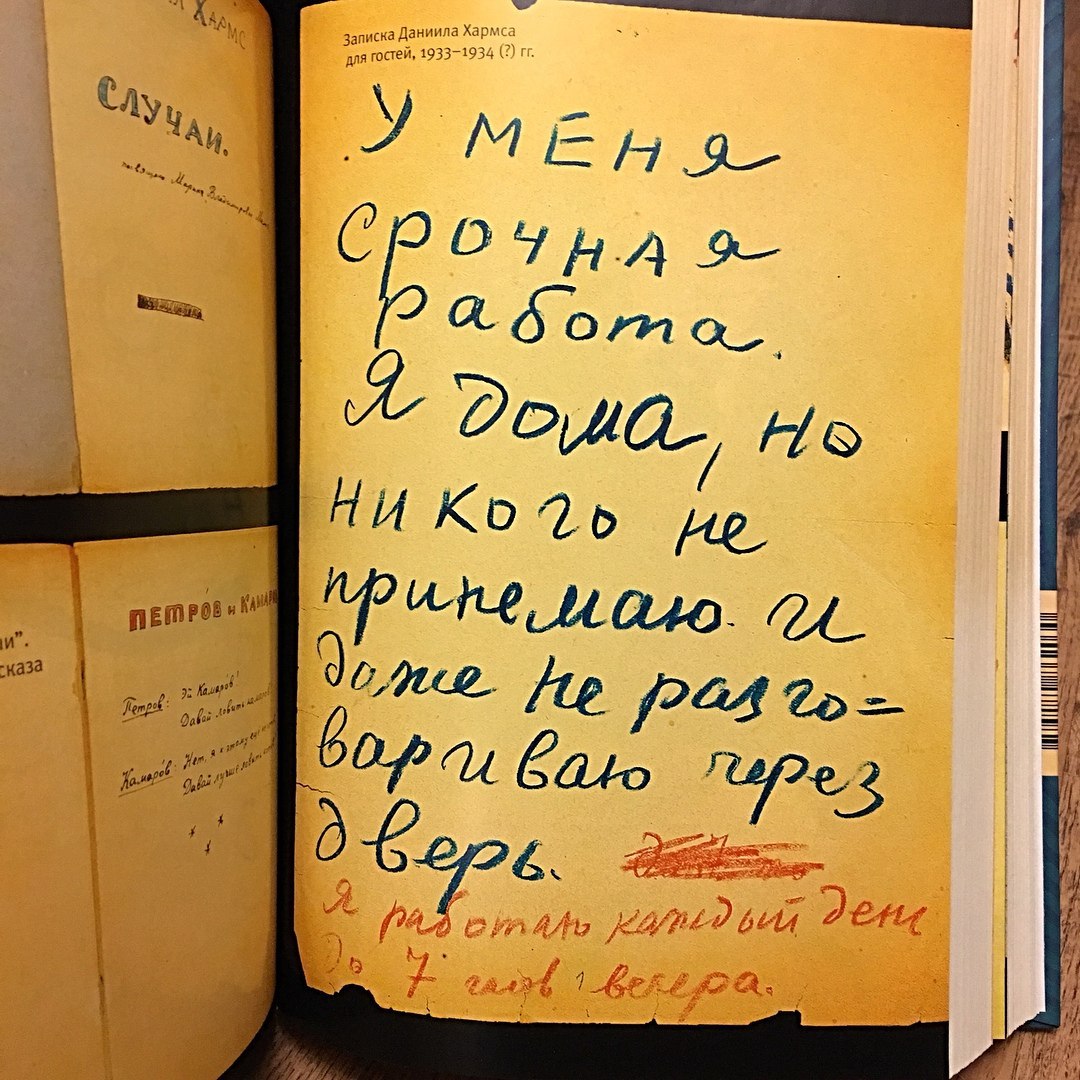 Хармс
СЛУЧАИ.
посвящаю Марине Владимировне
ПЕТРÓВ и КАМАР
Петров: Эй Камарóв!
Давай ловить комаров
Камарóв: Нет, я к этому еще не
Давай лучше ловить
аи”.
сказа
Записка Даниила Хармса
для гостей, 1933–1934 (?) гг.
У МЕНЯ
СРОЧНАЯ
работа.
Я дома, но
никого не
принемаю и
даже не разго=
вариваю через
дверь.
Я работаю каждый день
до 7 часов вечера.